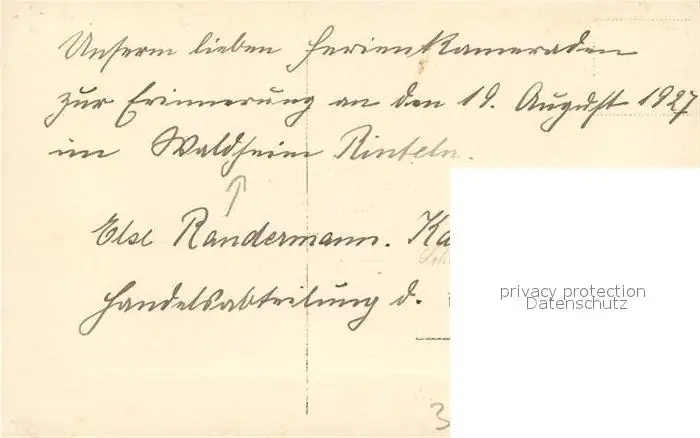 Unserm lieben Ferienkameraden
zur Erinnerung an den 19. August 1927
im Waldheim Rinteln.
Else Randermann. Ka
Handelsabteilung d.
privacy protection
Datenschutz
3